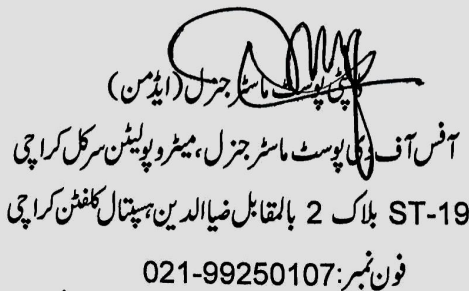 ڈپٹی پوسٹ ماسٹر جنرل (ایڈمن)
آفس آف دی پوسٹ ماسٹر جنرل، میٹروپولیٹن سرکل کراچی
ST-19 بلاک 2 بالمقابل ضیاالدین ہسپتال کلفٹن کراچی
فون نمبر: 021-99250107